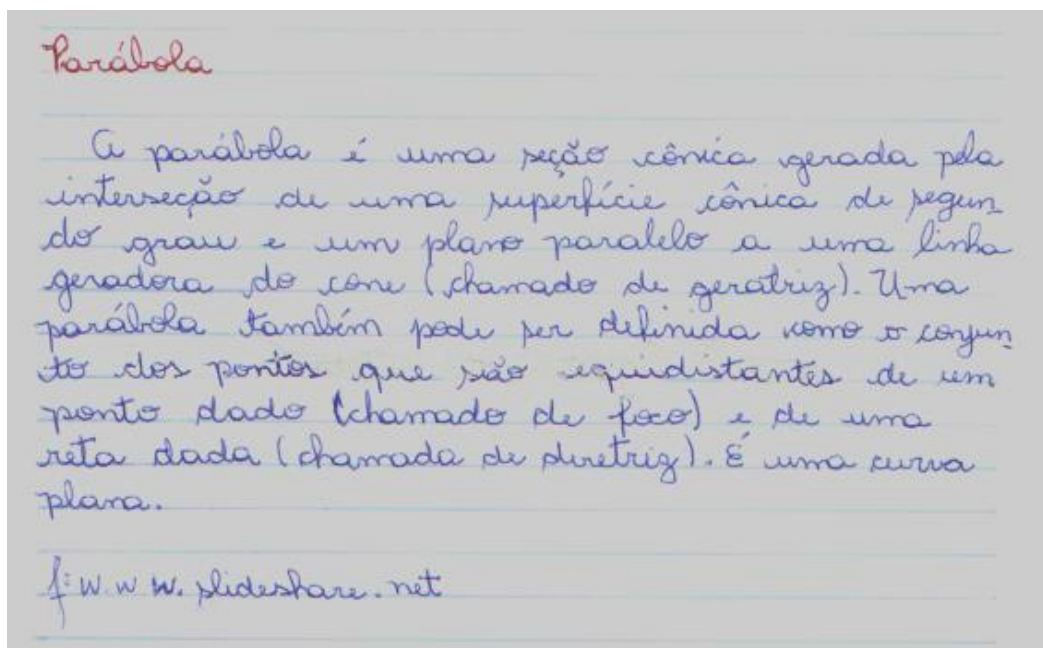 Parábola
A parábola é uma seção cônica gerada pela
interseção de uma superfície cônica de segun_
do grau e um plano paralelo a uma linha
geradora do cone (chamado de geratriz). Uma
parábola também pode ser definida como o conjun_
to dos pontos que são equidistantes de um
ponto dado (chamado de foco) e de uma
reta dada (chamada de diretriz). É uma curva
plana.
f:w.w w. slideshare.net